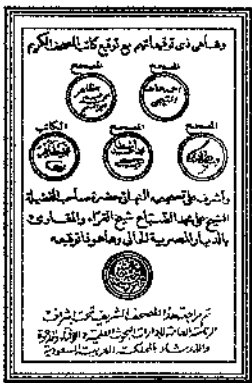 وها هي ذي توقيعاتهم مع توقيع كاتب المصحف الكريم
المصحح المصحح
المصحح المصحح الكاتب
وأشرف على تصحيحه النهائي حضرة صاحب الفضيلة
الشيخ علي محمد الضباع شيخ القراء والمقارئ
بالديار المصرية الحالي وها هو ذا توقيعه
تم مراجعة هذا المصحف الشريف تحت إشراف
الرئاسة العامة لإدارات البحوث العلمية والإفتاء والدعوة
والإرشاد بالمملكة العربية السعودية